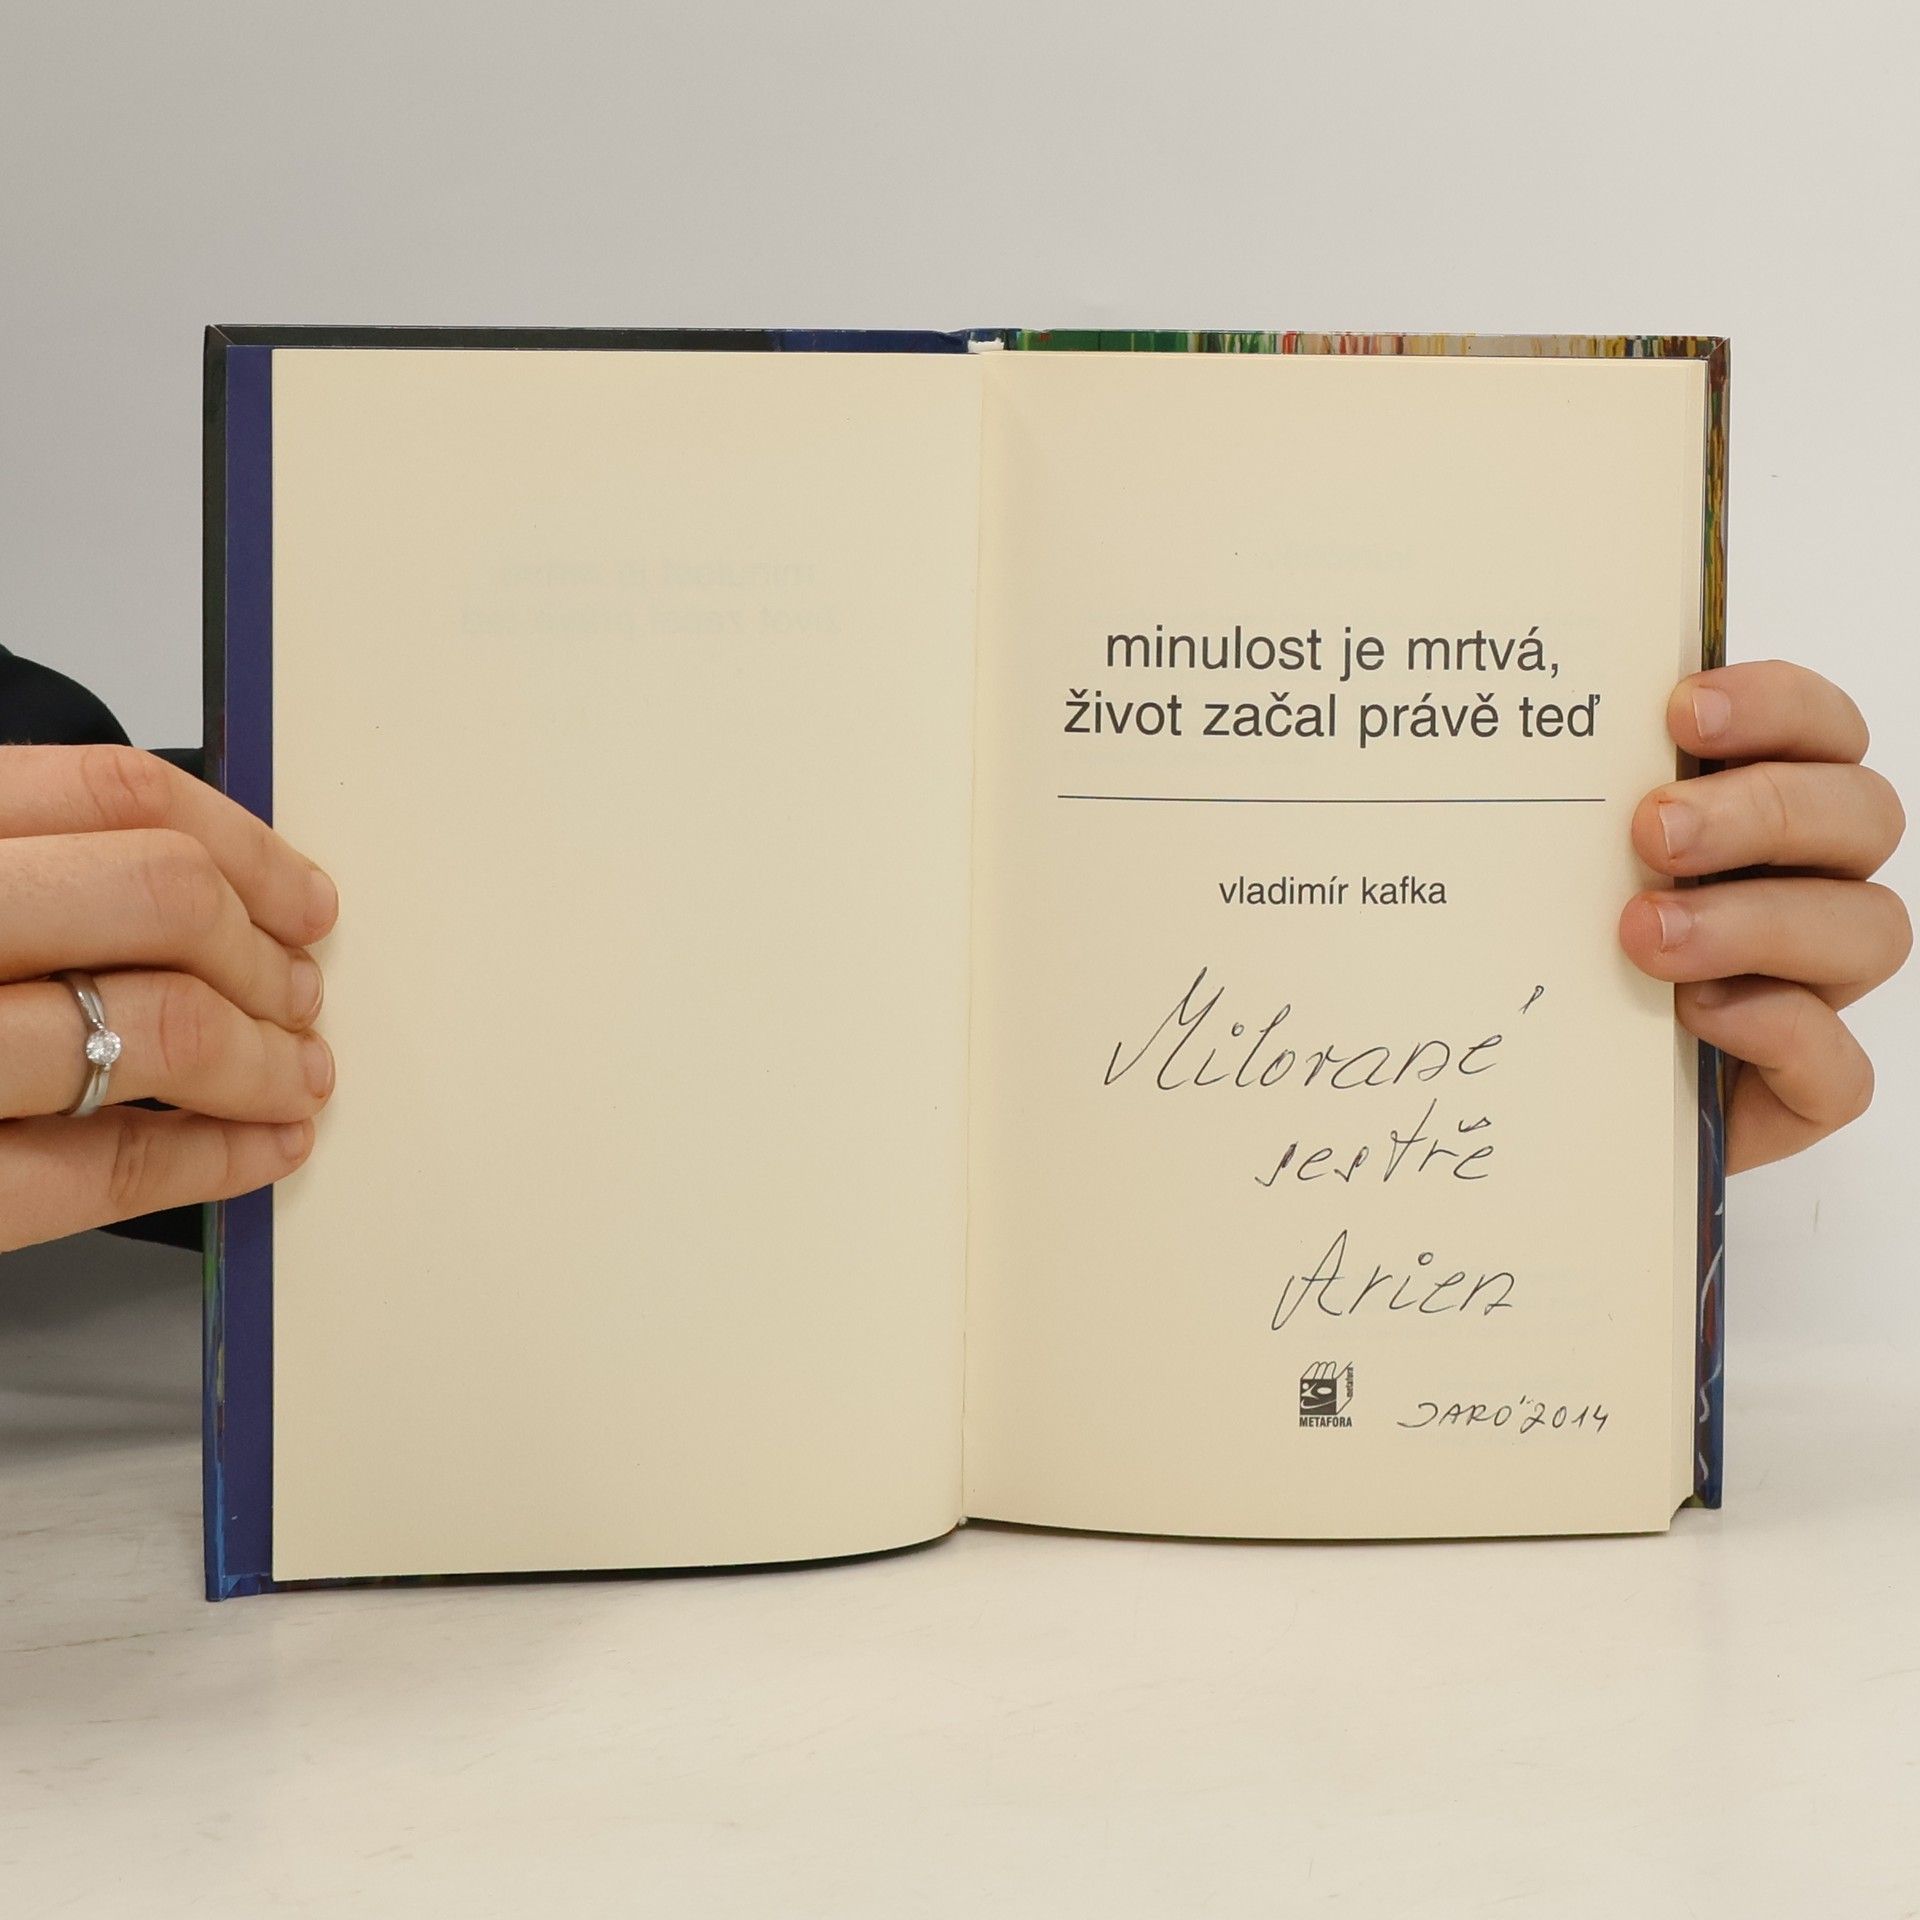 minulost je mrtvá,
život začal právě teď
vladimír kafka
Milované
sestře
Arien
metafora
METAFORA
JARO 2014